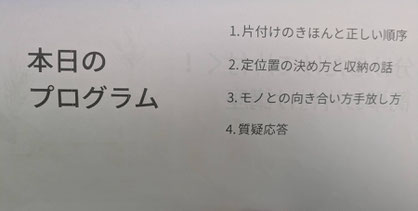 本日の
プログラム
1.片付けのきほんと正しい順序
2.定位置の決め方と収納の話
3.モノとの向き合い方手放し方
4.質疑応答